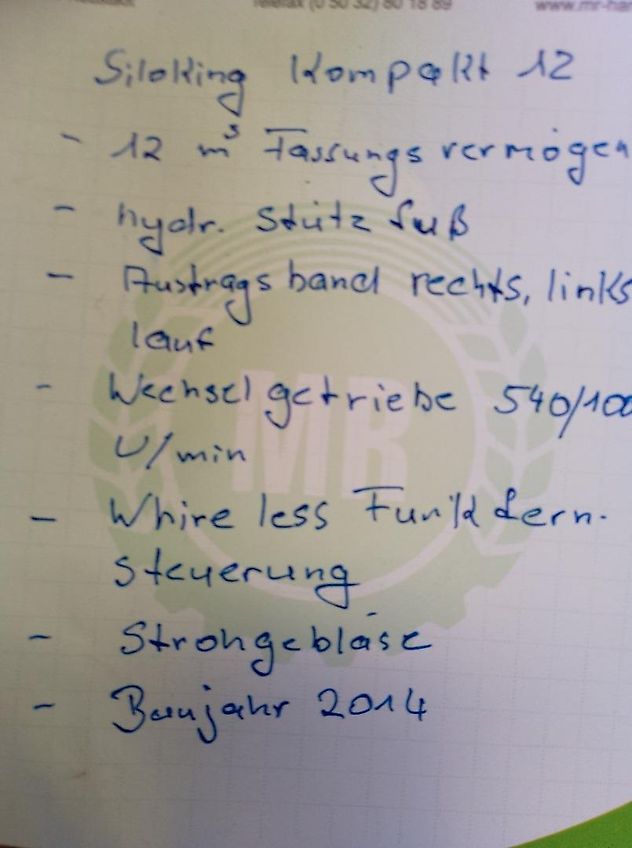 Telefax (0 50 32) 80 18 89 www.mr-han
Siloking Kompakt 12
- 12 m³ Fassungsvermögen
- hydr. Stützfuß
- Austragsband rechts, links
lauf
- Wechselgetriebe 540/100
U/min
- Whire less Funkfern-
steuerung
- Strohgebläse
- Baujahr 2014
MR